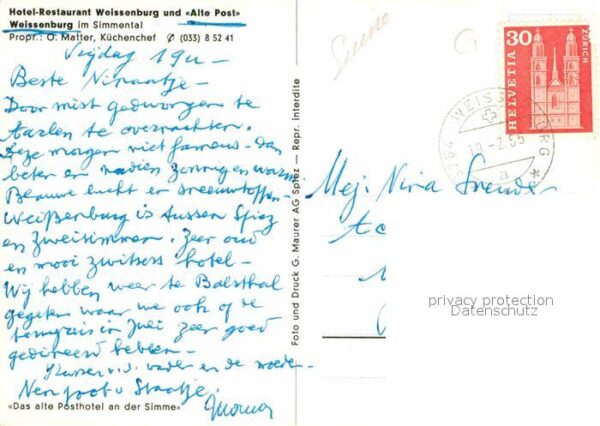 Hotel-Restaurant Weissenburg und «Alte Post»
Weissenburg im Simmental
Propr.: O. Matter, Küchenchef ✆ (033) 8 52 41
Vrijdag 19u —
Beste Ninaatje —
Door mist gedwongen te
Aarlen te overnachten.
Deze morgen niet famous - dan
beter en nadien zonnig en warm
Blauwe lucht en sneeuwtoppen -
Weißenburg is tussen Spiez
en Zweisimmen. Zeer oud
en mooi zwitsers hotel —
Wij hebben weer te Balsthal
gegeten waar we ook op de
terugreis in Juli zeer goed
gedineerd hebben —
Kussen v. vader en de moeder
«Das alte Posthotel an der Simme»
Foto und Druck G. Maurer AG Spiez — Repr. interdite
30
HELVETIA
ZÜRICH
WEISSENBURG
10.-2.65
a
Mej. Nina
privacy protection
Datenschutz